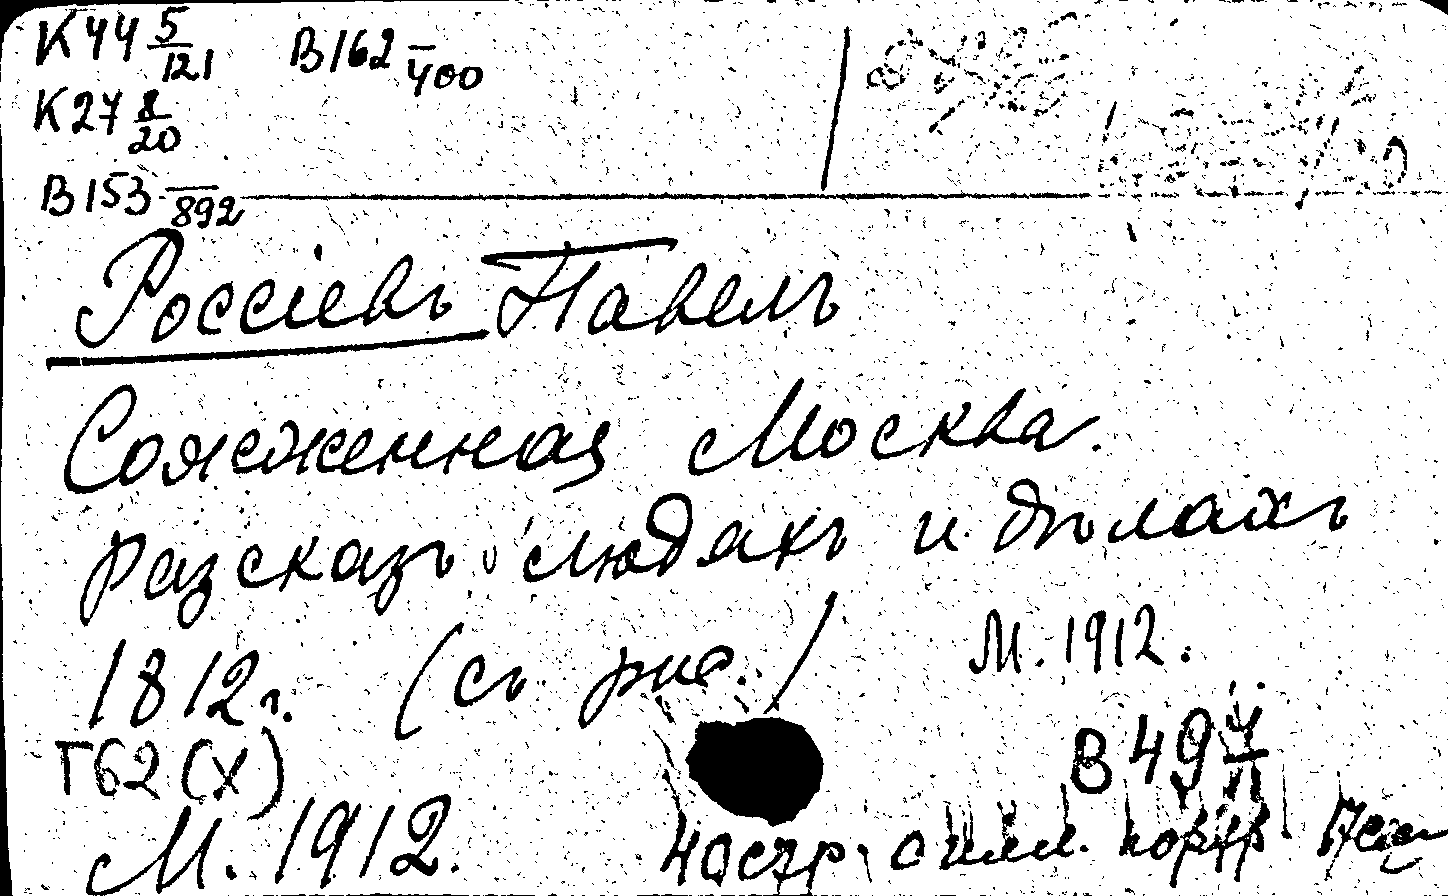 К44 5/121 В162 –/400
К27 8/20
В153 –/892
Россіевъ Павелъ
Сожженная Москва.
разсказъ о людяхъ и дѣлахъ
1812 г. (съ рис.) М. 1912.
Г62(х) В 49
М. 1912. 40 стр. с илл. портр.